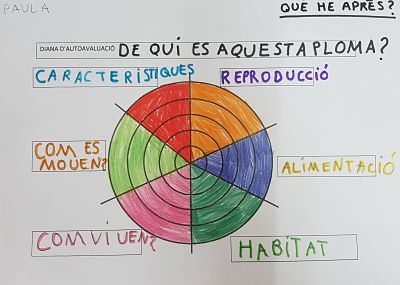 PAULA
QUÈ HE APRÈS?
DIANA D'AUTOAVALUACIÓ DE QUÍ ES AQUESTA PLOMA?
CARACTERÍSTIQUES
REPRODUCCIÓ
COM ES
MOUEN?
ALIMENTACIÓ
COM VIUEN?
HABITAT